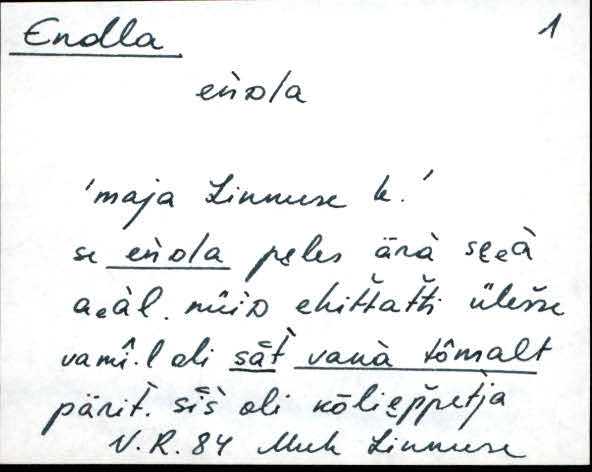 Endla 1
eǹᴅla
'maja Linnuse k.'
se eǹᴅla peles ärà sẹeà
aeàl. nüiᴅ ehit̆t̆at̆ti ülesse
vamî.l oli sāt̀ vanà tômsalt
pärit̀. sīs̀ oli kōliẹp̆petja
V.R. 84 Muh Linnuse